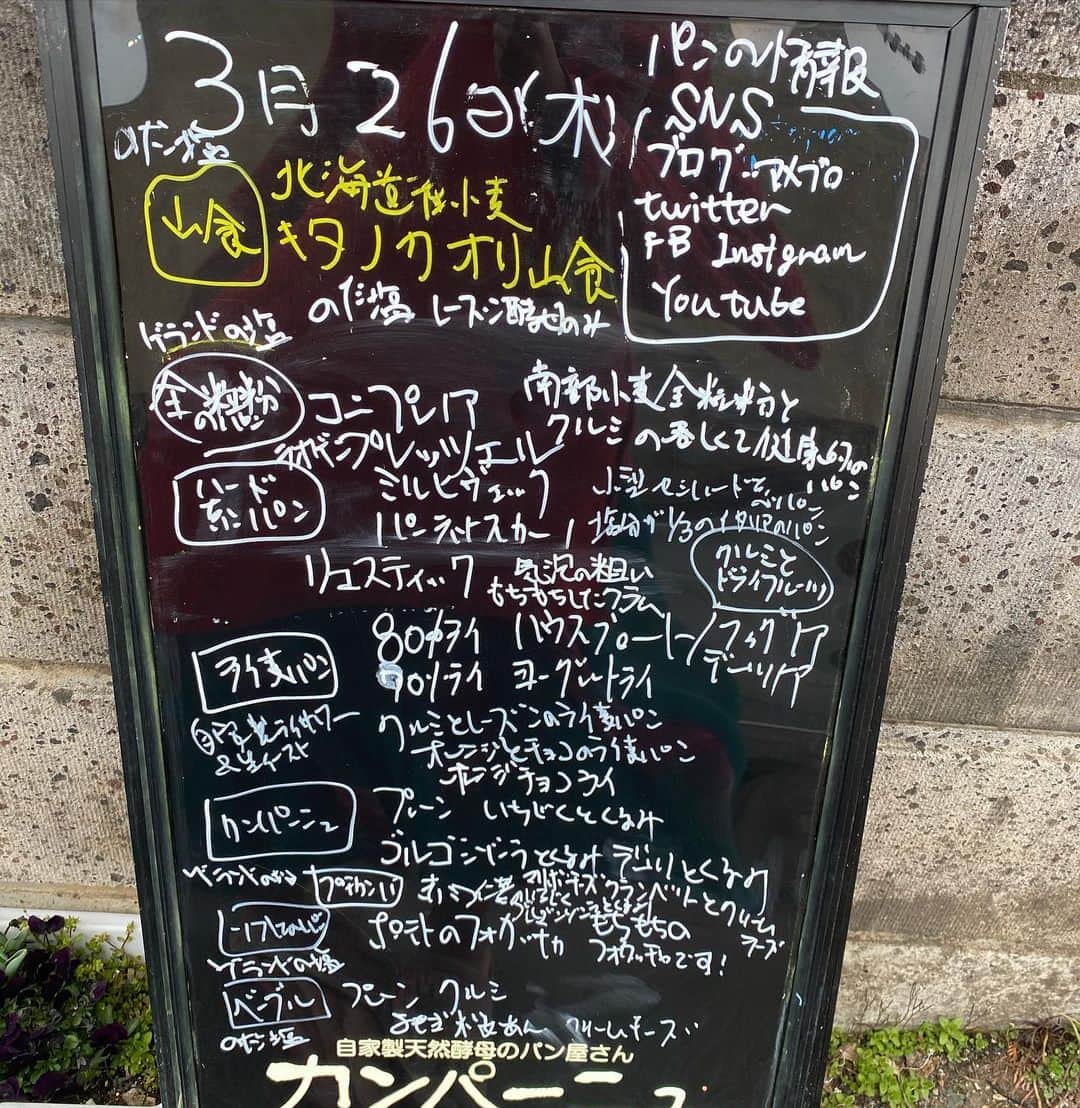 3月26日(木)
パンの情報
SNS
ブログ アメブロ
twitter
FB Instgram
Youtube
のだ塩
山食
北海道産小麦
キタノカオリ山食
のだ塩 レーズン酵母のみ
ゲランドの塩
全粒粉のパン
コンプレア
南部小麦全粒粉と
クルミの香しくて健康的な
パン
ラオゲンプレッツェル
ハード系パン
ミルヒヴェック
パーネトスカーノ
塩分が1/3のイタリアのパン
リュスティック
気泡の粗い
もちもちしたクラム
クルミと
ドライフルーツ
ライ麦パン
80%ライ ハウスブロート
90%ライ ヨーグルトライ
自家製ライサワー
&生イースト
クルミとレーズンのライ麦パン
オレンジとチョコのライ麦パン
オレンジチョコライ
カンパーニュ
プレーン いちじくとくるみ
ゴルゴンゾーラとくるみ
ゲランドの塩
プチカンパ
クランベリーとクリーム
チーズ
ポテトのフォカッチャ
もちもちの
フォカッチャです!
ゲランドの塩
ベーグル
プレーン クルミ
よもぎ 粒あん クリームチーズ
のだ塩
自家製天然酵母のパン屋さん
カンパーニュ